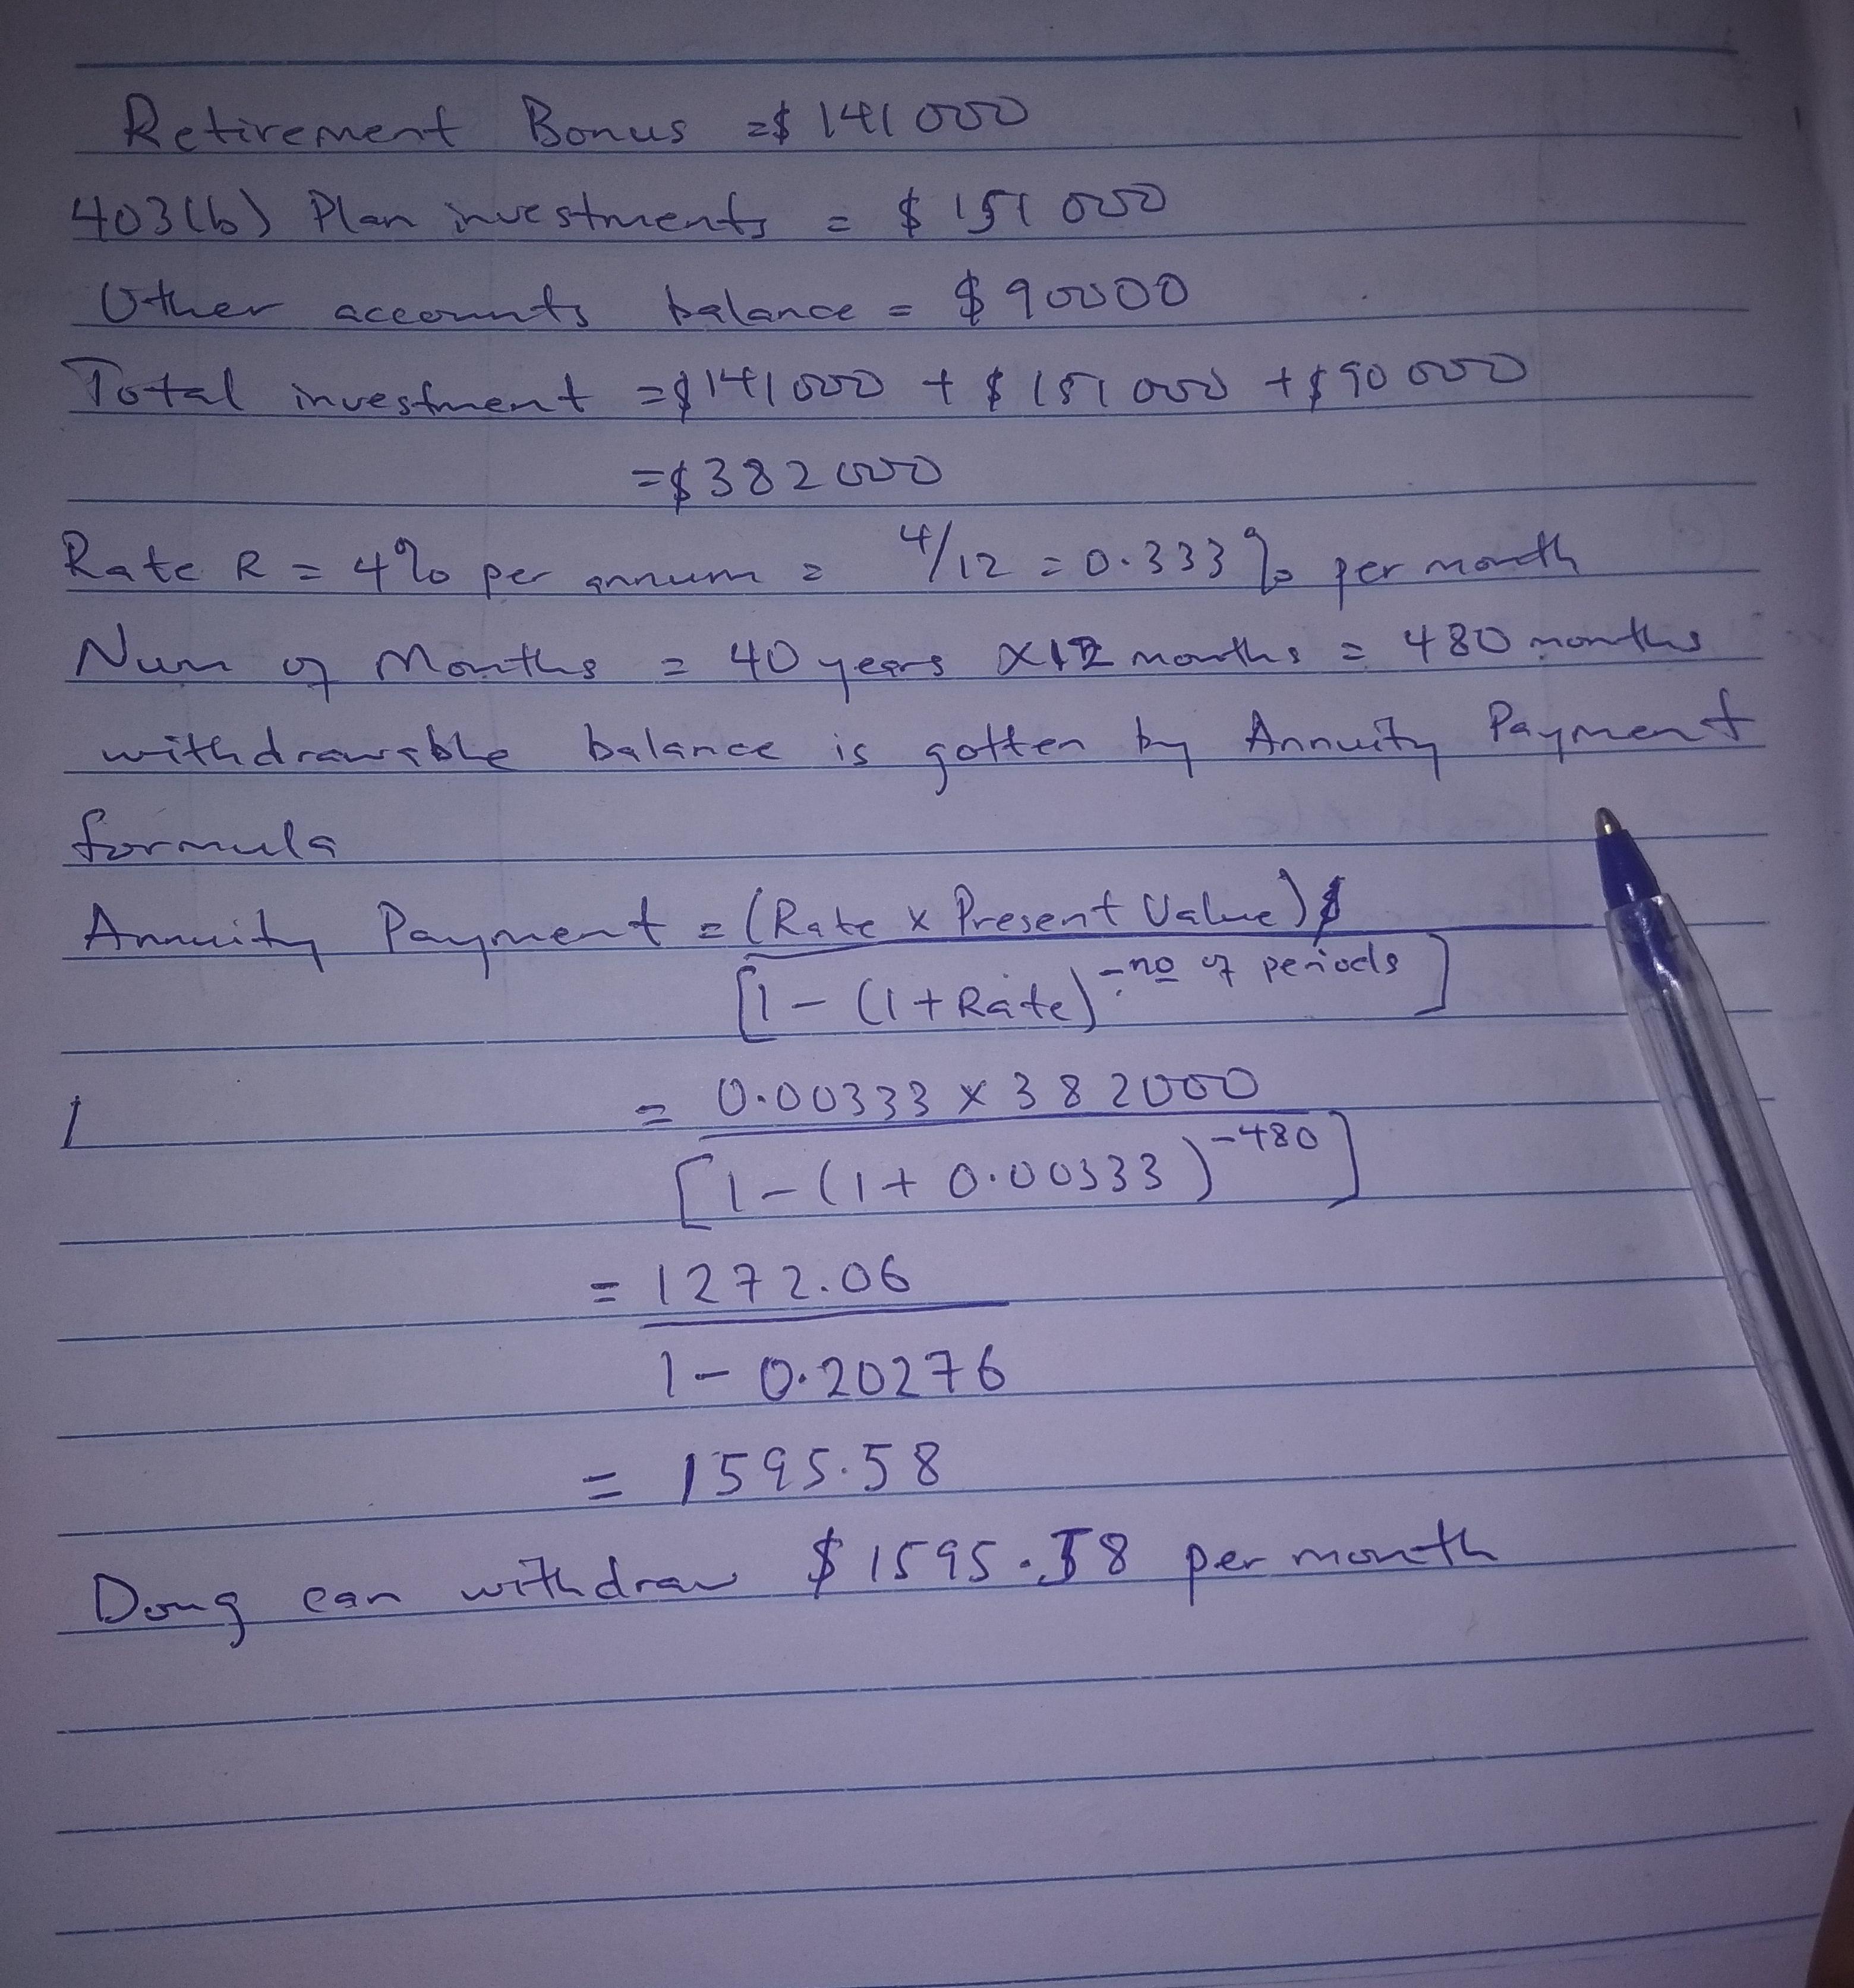 Retirement Bonus =$ 141000
403(b) Plan investments = $ 151000
Other accounts balance = $90000
Total investment =$141000 + $ 151000 +$90000
=$382000
Rate R = 4% per annum = 4/12 = 0.333% per month
Num of Months = 40 years x12 months = 480 months
withdrawable balance is gotten by Annuity Payment
formula
Annuity Payment = (Rate x Present Value)
[1 - (1+Rate)^-no of periods]
= 0.00333 x 382000
[1-(1+0.00333)^-480]
= 1272.06
1-0.20276
= 1595.58
Doug can withdraw $1595.58 per month